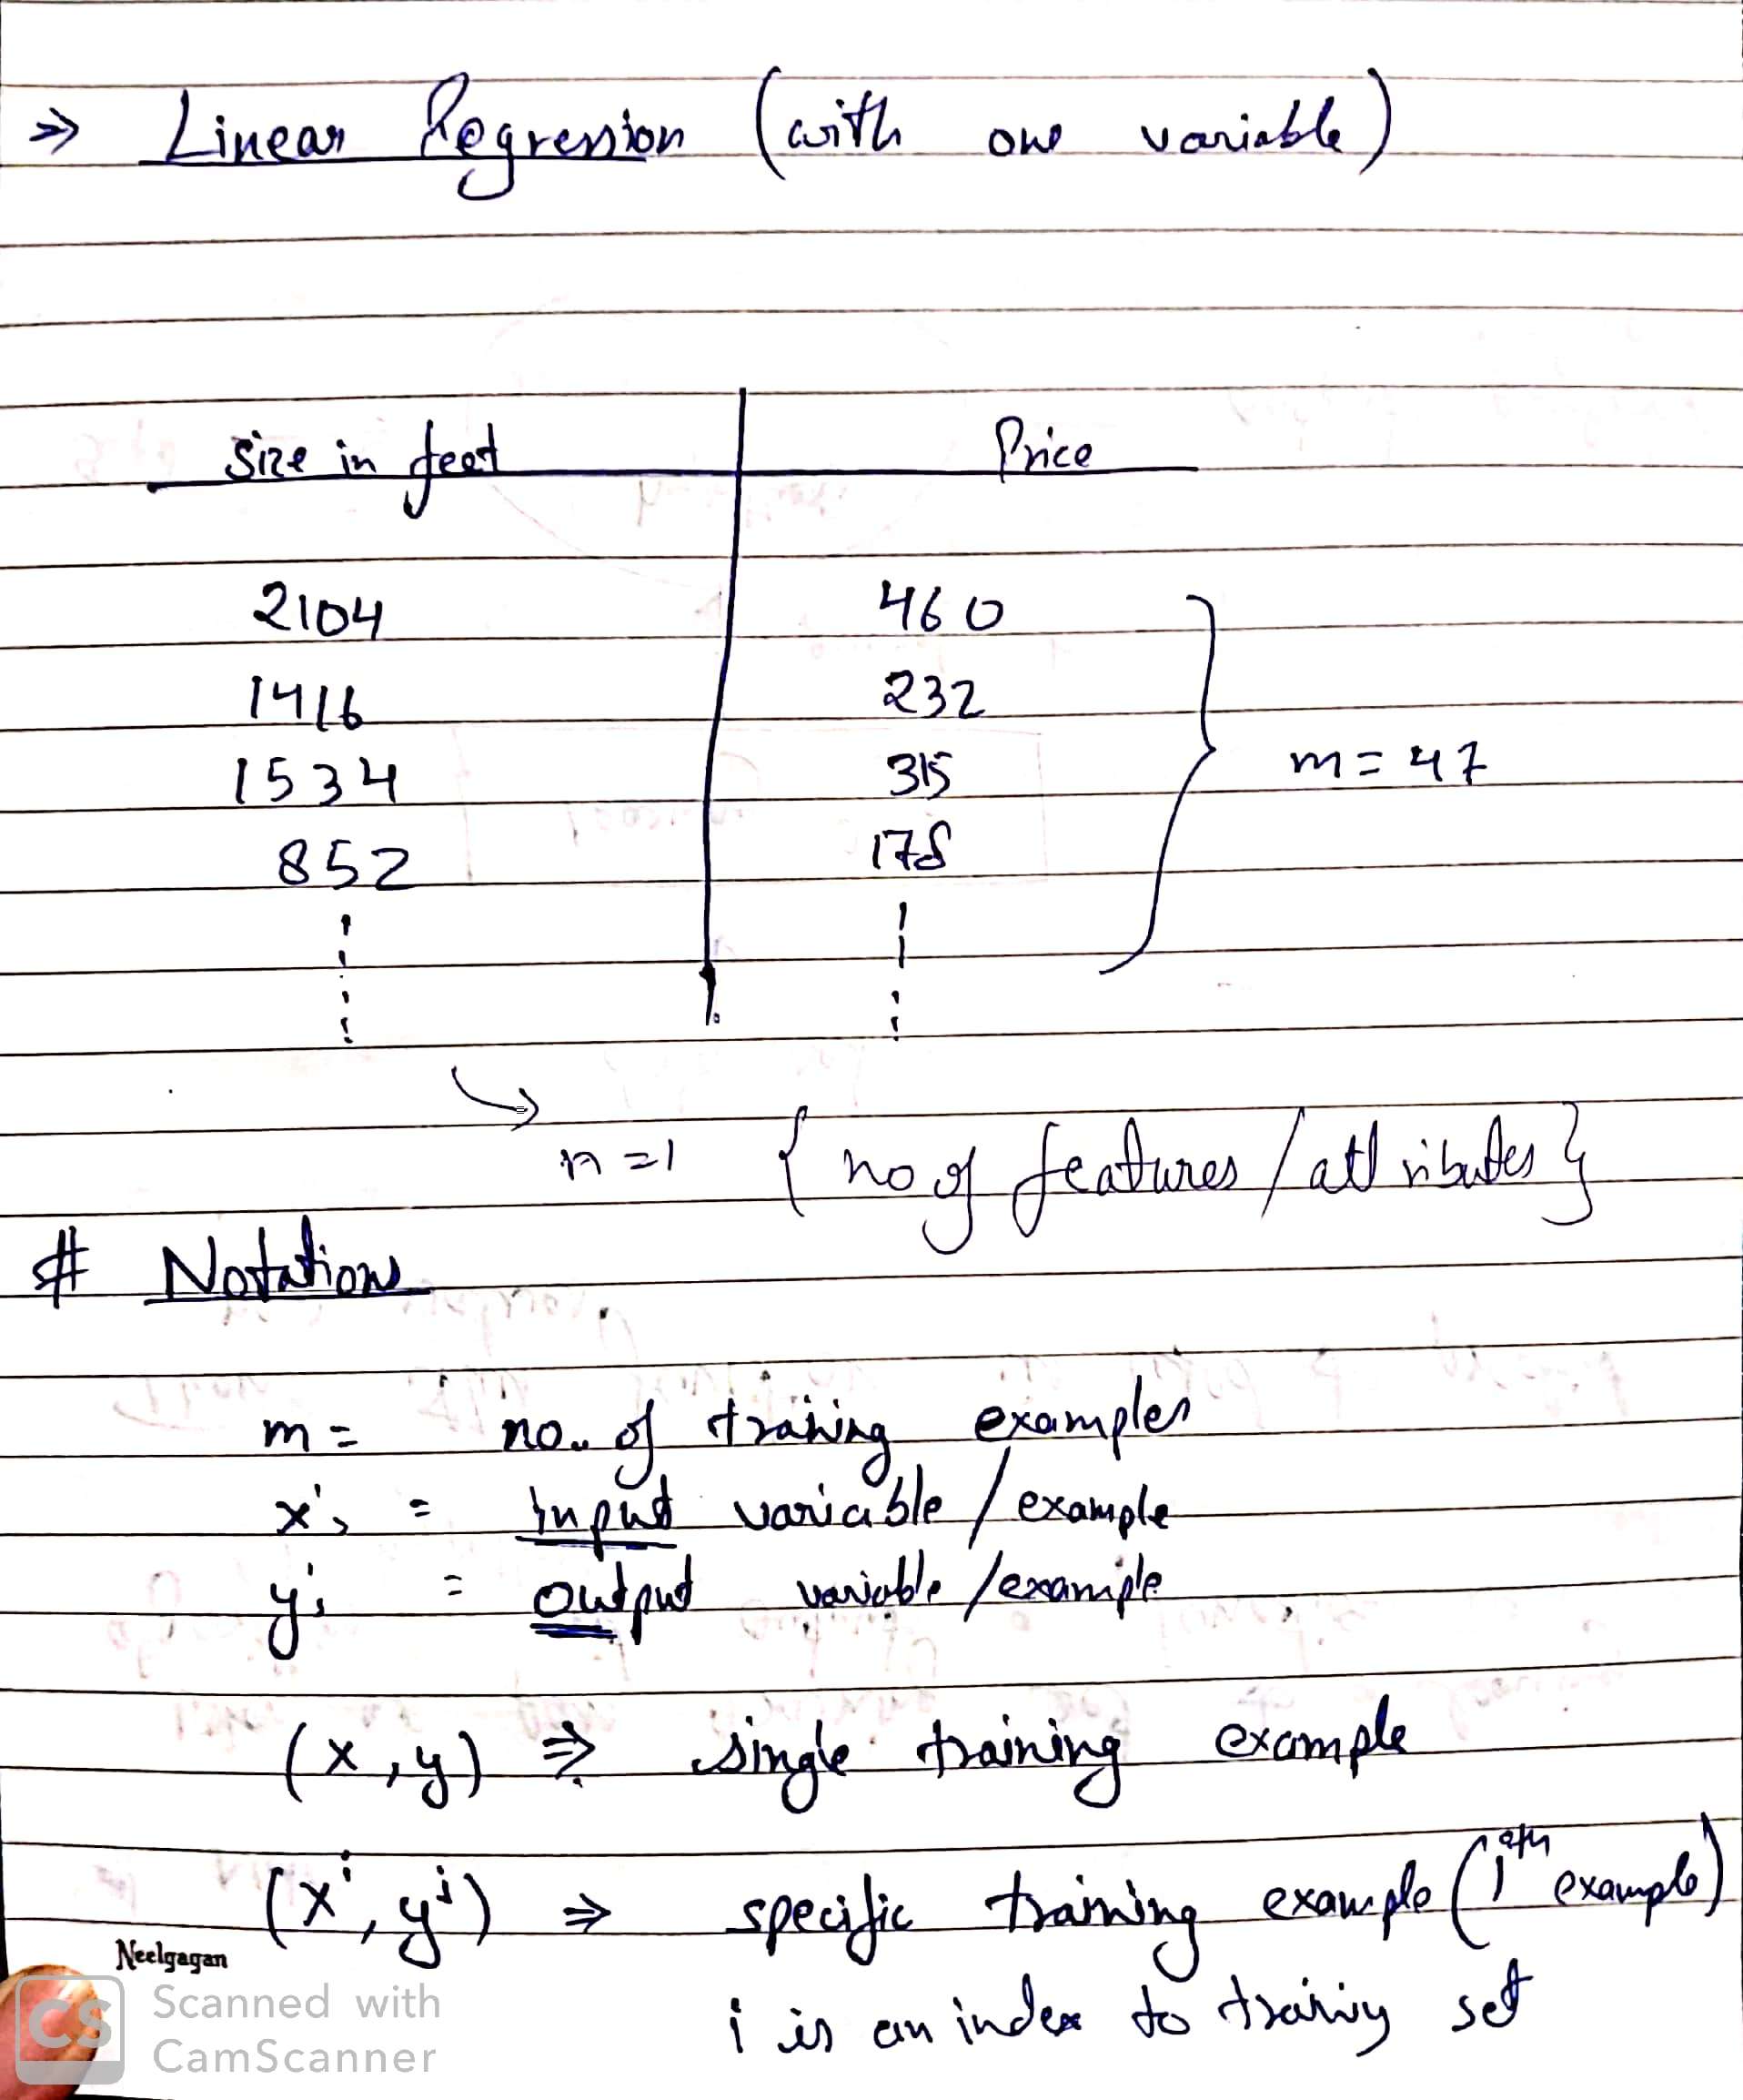 ⇒ Linear Regression (with one variable)
Size in feet | Price
2104 460
1416 232
1534 315 m = 47
852 178
n = 1 { no of features / attributes }
# Notations
m = no. of training examples
x's = input variable / example
y's = output variable / example
(x, y) ⇒ single training example
(xⁱ, yⁱ) ⇒ specific training example (iᵗʰ example)
i is an index to training set
Neelgagan
CS Scanned with
CamScanner